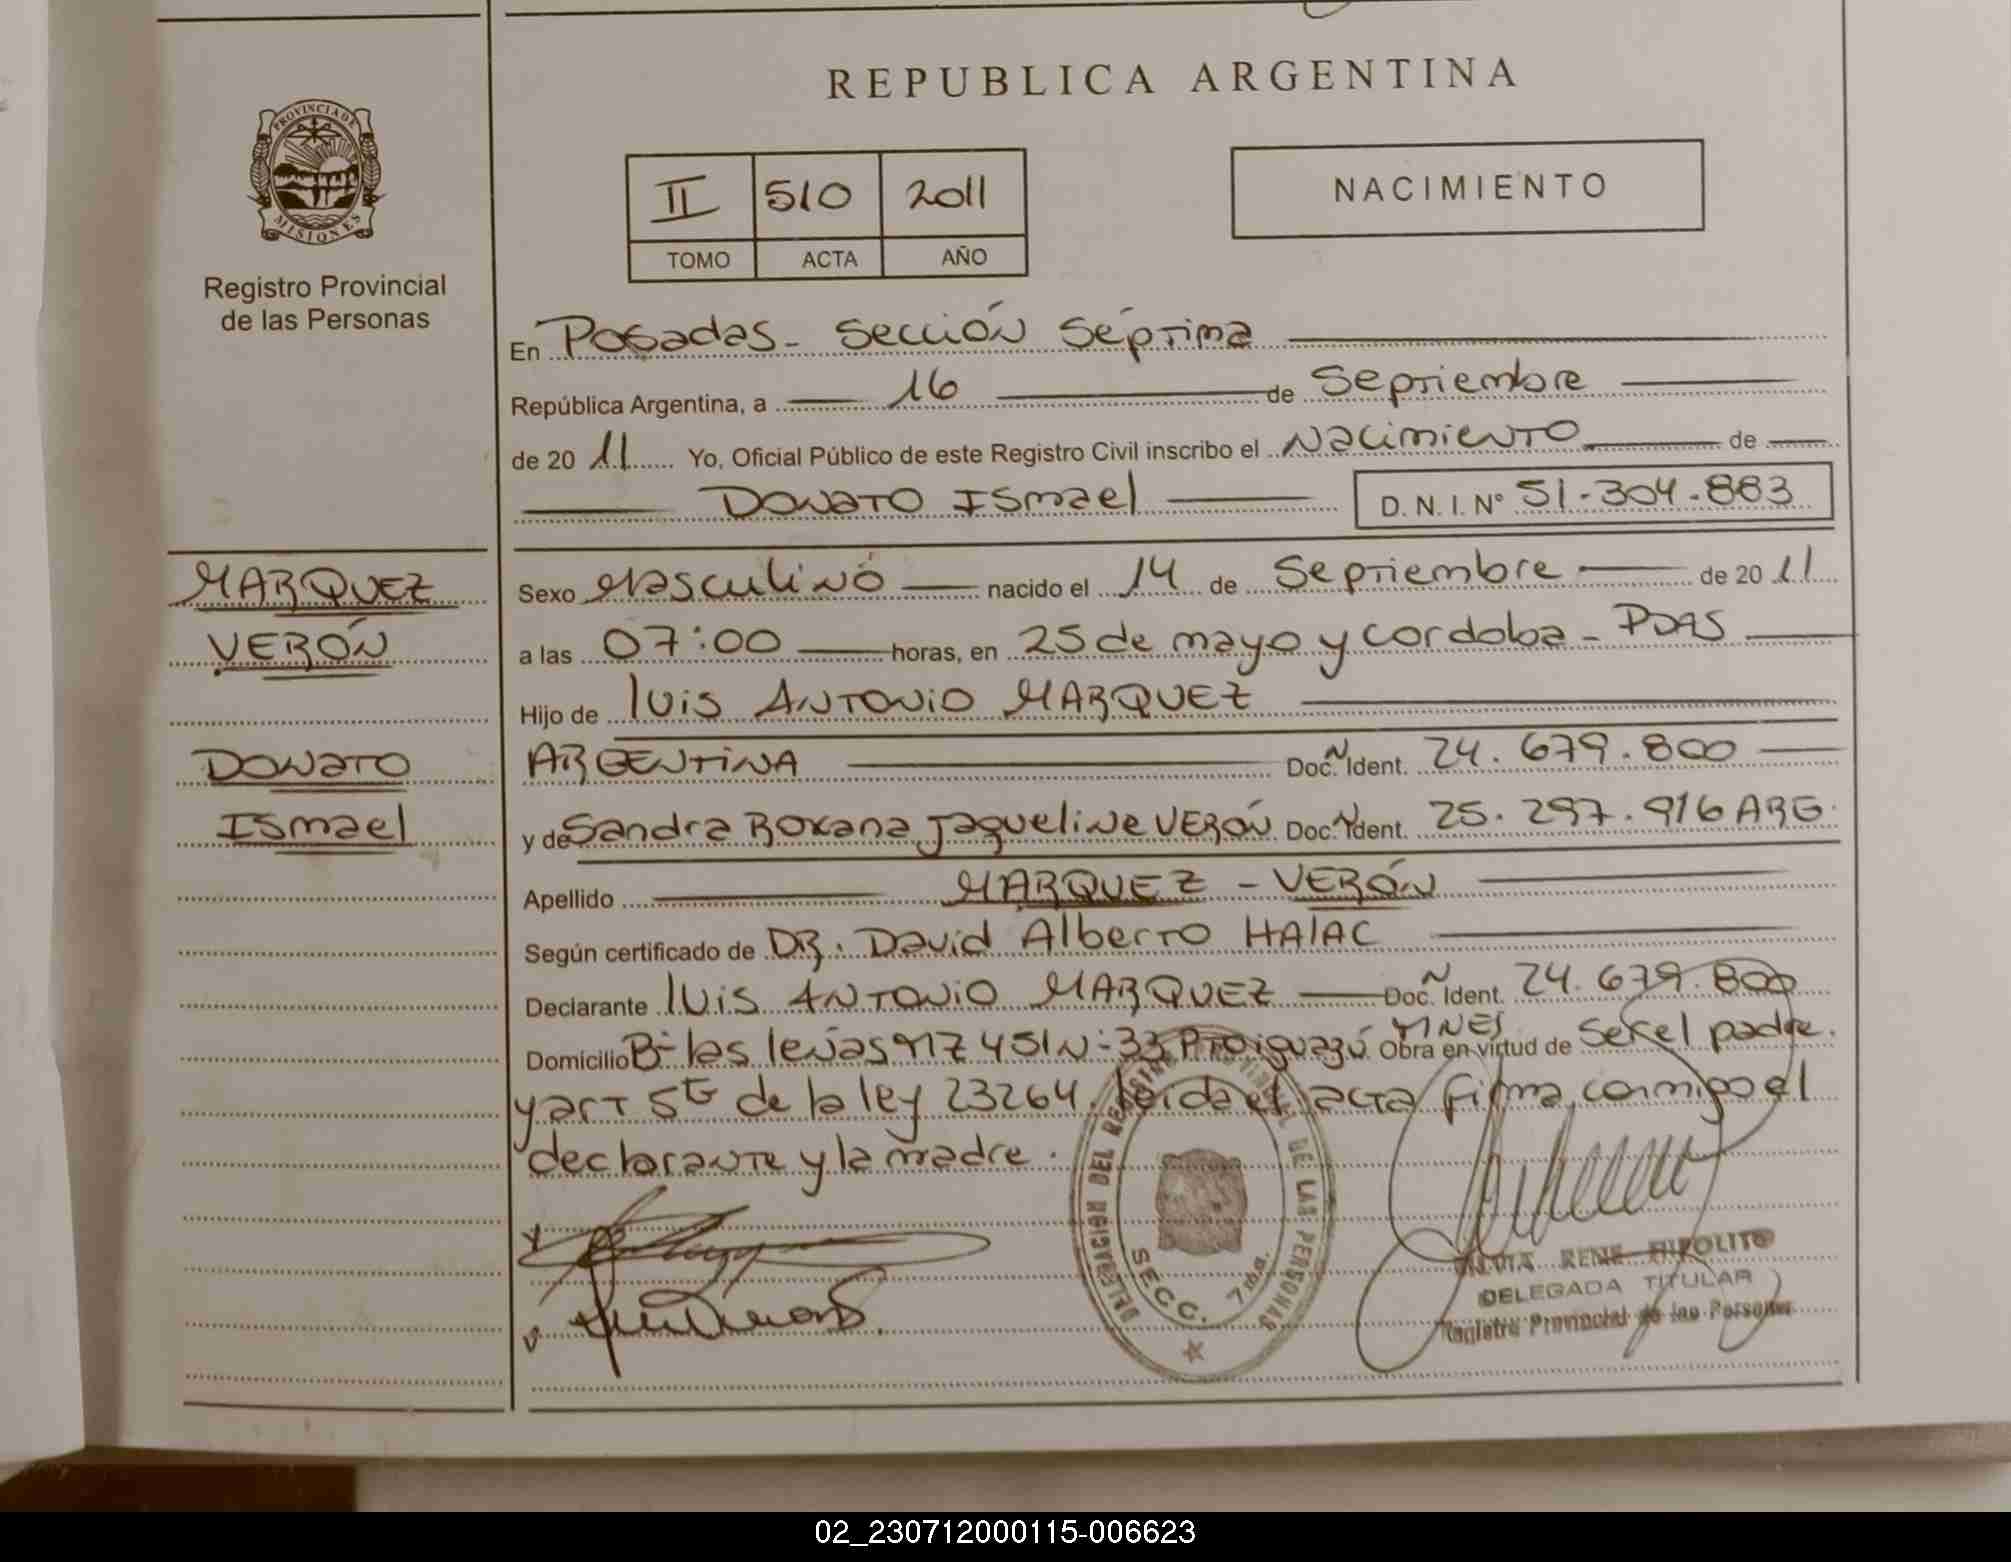 REPUBLICA ARGENTINA
PROVINCIA DE
MISIONES
Registro Provincial
de las Personas
II 510 2011
TOMO ACTA AÑO
NACIMIENTO
En Posadas - Sección Séptima
República Argentina, a 16 de Septiembre
de 2011 Yo, Oficial Público de este Registro Civil inscribo el Nacimiento de
DONATO ISmael D.N.I. Nº 51.304.883
MARQUEZ
VERÓN
DONATO
ISmael
Sexo Masculino nacido el 14 de Septiembre de 2011
a las 07:00 horas, en 25 de mayo y cordoba - PDAS
Hijo de luis ANTONIO MARQUEZ
ARGENTINA Doc. Ident. 24.679.800
y de Sandra Roxana Jaqueline VERÓN Doc. Ident. 25.297.916 ARG.
Apellido MARQUEZ - VERÓN
Según certificado de DR. David Alberto HAlAC
Declarante luis ANTONIO MARQUEZ Doc. Ident. 24.679.800
Domicilio Bº las leñas MZ 45 lN-33 Pto iguazú MNES Obra en virtud de Ser el padre
y art 5to de la ley 23264. leida el acta firma conmigo el
declarante y la madre.
DELEGACION DEL DE LAS PERSONAS
SECC. 7ma.
RENE HIPOLITO
DELEGADA TITULAR
Registro Provincial de las Personas
02_230712000115-006623